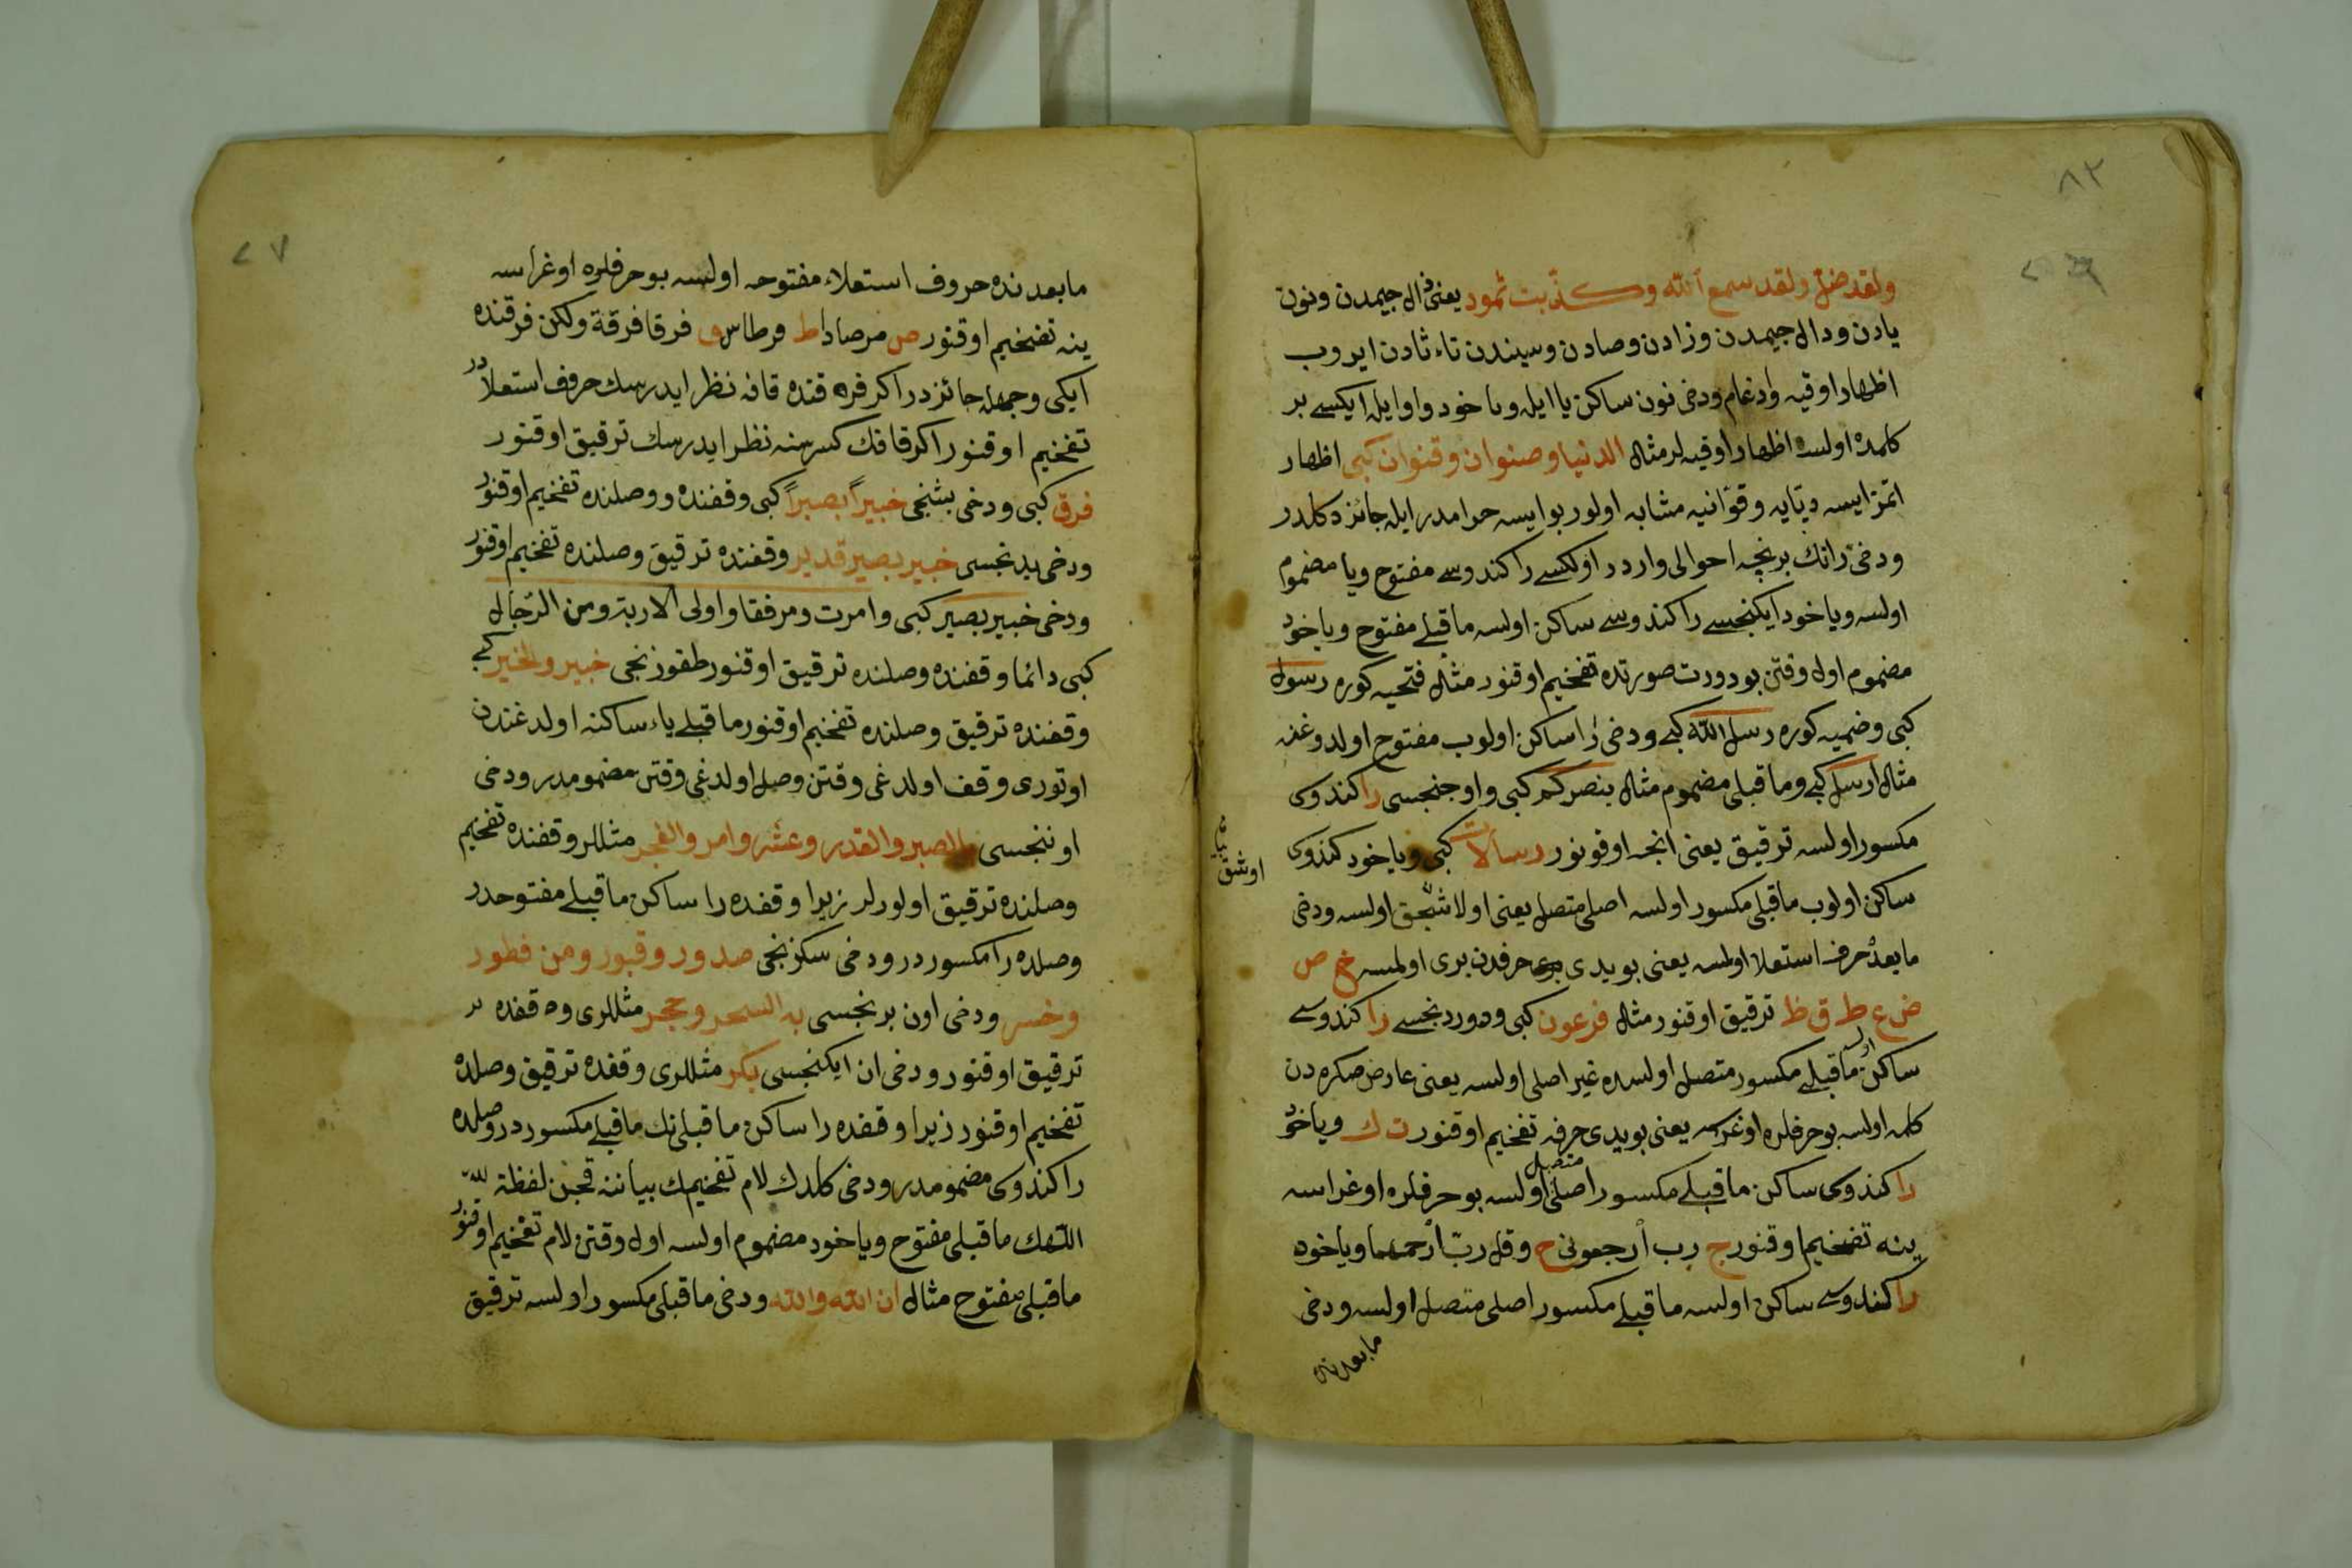 ٨٢
ولقد ضل ولقد سمع الله وكذبت ثمود يعنى ذال جيمدن ونون
يادن ودال جيمدن وزادن وصادن وسيندن تاء ثادن ايروب
اظهار اوقيه وادغام ودخى نون ساكن يا ايله ويا خود واو ايله ايكسى بر
كلمه ده اولسه اظهار اوقيه لر مثال الدنيا وصنوان وقنوان كبى اظهار
اتمز ايسه ديّايه وقوّانيه مشابه اولور بو ايسه حرامدر ايله جائز دكلدر
ودخى رانك بر نجه احوالى واردر اولكسى را كندوسى مفتوح ويا مضموم
اولسه ويا خود ايكنجسى را كندوسى ساكن اولسه ما قبلى مفتوح ويا خود
مضموم اول وقتن بو دورت صورتده تفخيم اوقنور مثال فتحيه كوره رسول
كبى وضميه كوره رسل الله كبى ودخى را ساكن اولوب مفتوح اولدوغنه
مثال ارسل كبى وما قبلى مضموم مثال ينصركم كبى واوجنجسى را كندوى
مكسور اولسه ترقيق يعنى انجه اوقونور رسالات كبى ويا خود كندوى
ساكن اولوب ما قبلى مكسور اولسه اصلى متصل يعنى اولاشجق اولسه ودخى
ما بعد حرف استعلا اولمسه يعنى بو يدى حرفدن برى اولمسه خ ص
ض ع ط ق ظ ترقيق اوقنور مثال فرعون كبى ودوردنجسى را كندوسى
ساكن اولسه ما قبلى مكسور متصل اولسه ده غير اصلى اولسه يعنى عارض صكره دن
كلمه اولسه بو حرفلره اوغراسه يعنى بو يدى حرفه تفخيم اوقنور ت ك ويا خود
را كندوى ساكن ما قبلى مكسور اصلى متصل اولسه بو حرفلره اوغراسه
ينه تفخيم اوقنور ج رب ارجعون ح وقل ربّ ارحمهما ويا خود
را كندوسى ساكن اولسه ما قبلى مكسور اصلى متصل اولسه ودخى
ما بعدنده
اوشق
٧
ما بعدنده حروف استعلاء مفتوحه اولسه بو حرفلره اوغراسه
ينه تفخيم اوقنور ص مرصادا ط قرطاس ق فرقا فرقة ولكن فرقنده
ايكى وجهله جائزدر اكر فرقنده قافه نظر ايدرسك حروف استعلادر
تفخيم اوقنور اكر قافك كسرسنه نظر ايدرسك ترقيق اوقنور
فرق كبى ودخى بشنجى خبيراً بصيراً كبى وقفنده ووصلنده تفخيم اوقنور
ودخى يدنجسى خبير بصير قدير وقفنده ترقيق وصلنده تفخيم اوقنور
ودخى خبير بصير كبى وامرت ومرفقا واولى الاربة ومن الرّجال
كبى دائما وقفنده وصلنده ترقيق اوقنور طقوزنجى خبير والخير كبى
وقفنده ترقيق وصلنده تفخيم اوقنور ما قبلى ياء ساكنه اولدغندن
اوتورى وقف اولدغى وقتن وصل اولدغى وقتن مضمومدر ودخى
اوننجسى بالصبر والقدر وعشر وامر والفجر مثللر وقفنده تفخيم
وصلنده ترقيق اولورلر زيرا وقفده را ساكن ما قبلى مفتوحدر
وصلده را مكسوردر ودخى سكزنجى صدور وقبور ومن فطور
وخسر ودخى اون برنجسى به السحر وحجر مثللرى وقفده
ترقيق اوقنور ودخى ان ايكنجسى بكر مثللرى وقفده ترقيق وصلده
تفخيم اوقنور زيرا وقفده را ساكن ما قبلى نك ما قبلى مكسوردر وصلده
را كندوى مضمومدر ودخى كلدك لام تفخيمك بياننه قچن لفظة لله
اللهك ما قبلى مفتوح ويا خود مضموم اولسه اول وقتن لام تفخيم اوقنور
ما قبلى مفتوح مثال ان الله والله ودخى ما قبلى مكسور اولسه ترقيق